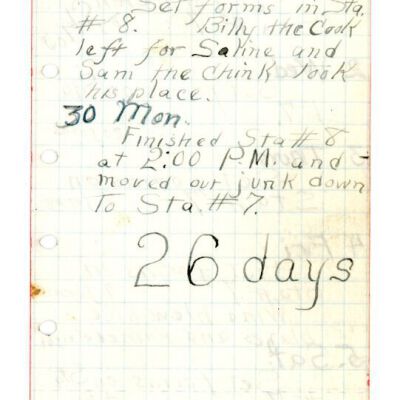 Set forms in Sta.
# 8. Billy the Cook
left for Saline and
Sam the Chink took
his place.
30 Mon.
Finished Sta # 8
at 2:00 P.M. and
moved our junk down
To Sta. # 7.
26 days